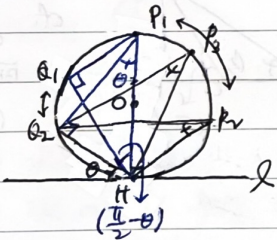 P₁
P₃
Q₁
x
x
θ
O
Q₂
x
P₂
θ
H
l
(π/2 - θ)